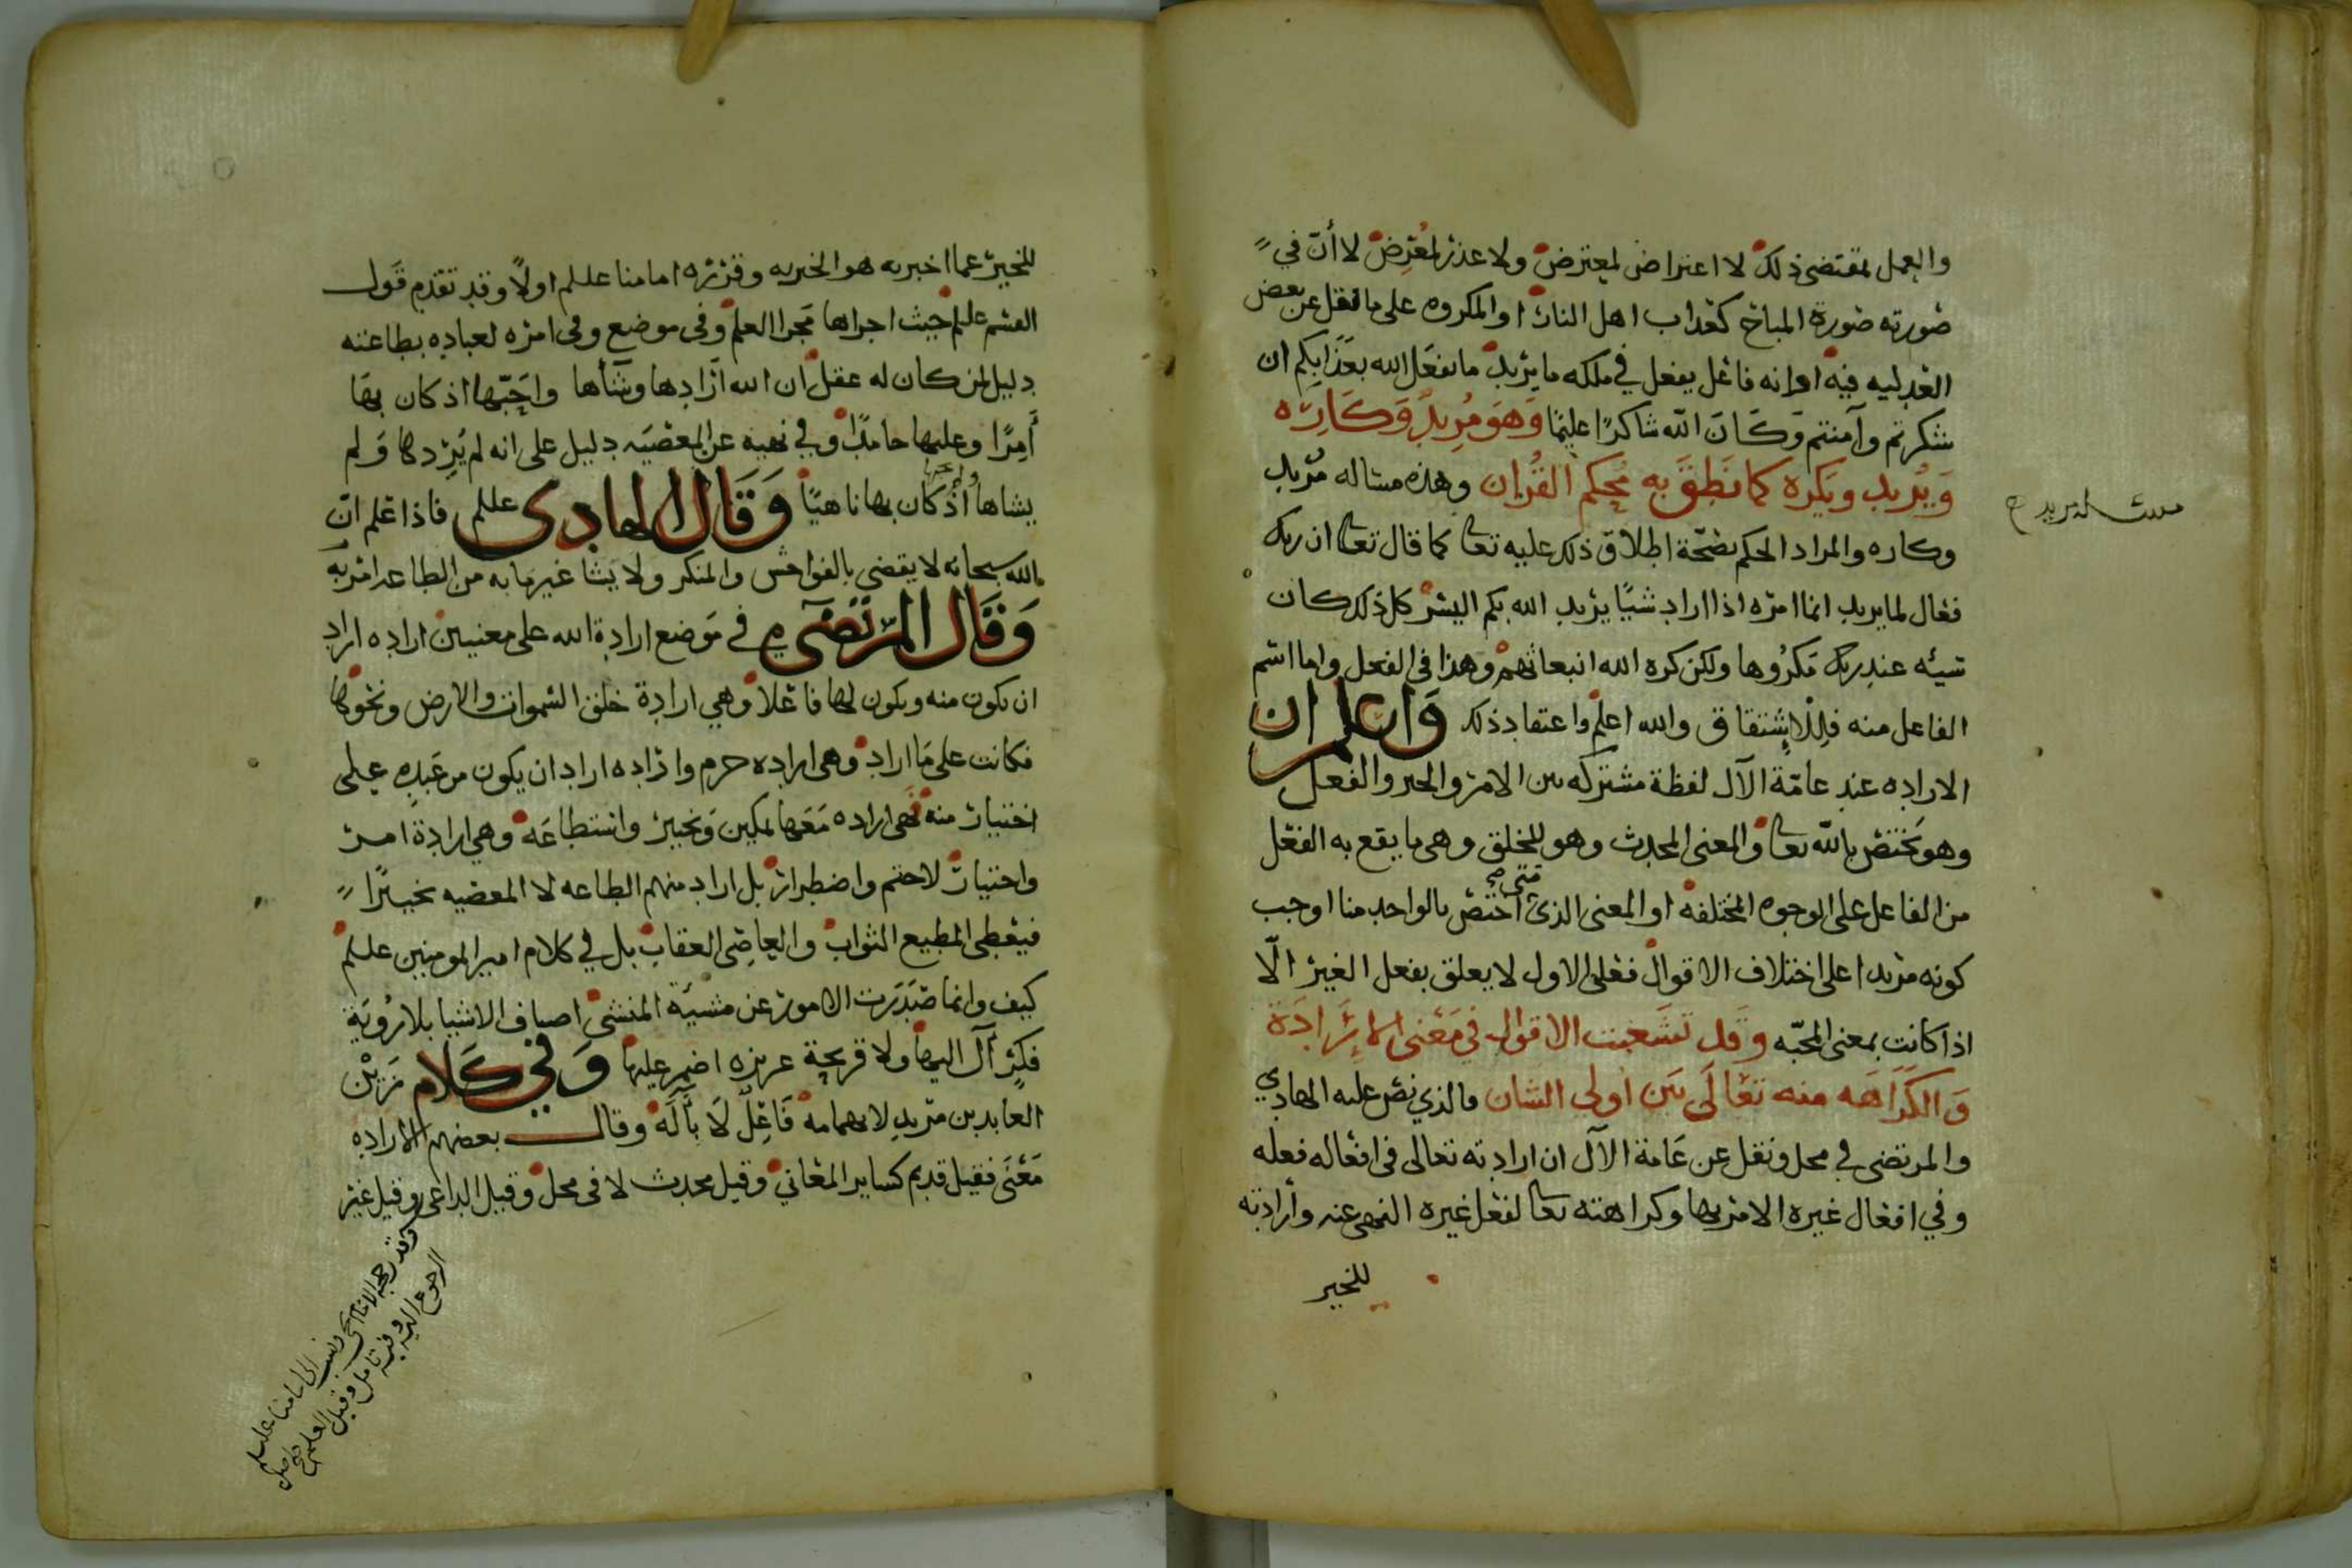 والعمل بمقتضى ذلك لا اعتراض لمعترض ولا عذر لمعرض لا أن في
صورته صورة المباح كعذاب اهل النار او المكروه على ما نقل عن بعض
العدليه فيه او انه فاعل يفعل في ملكه ما يريد ما يفعل الله بعذابكم ان
شكرتم وآمنتم وكان الله شاكرًا عليمًا وهو مريد وكاره
ويريد ويكره كما نطق به محكم القران وهذه مساله مريد
مسئله مريد
وكاره والمراد الحكم بصحة اطلاق ذلك عليه تعالى كما قال تعالى ان ربك
فعال لما يريد انما امره اذا اراد شيًا يريد الله بكم اليسر كل ذلك كان
سيئه عند ربك مكروها ولكن كره الله انبعاثهم وهذا في الفعل واما اسم
الفاعل منه فللاشتقاق والله اعلم واعتقاد ذلك واعلم ان
الاراده عند عامة الآل لفظة مشتركه بين الامر والخبر والفعل
وهو يختص بالله تعالى والمعنى المحدث وهو للخلق وهى ما يقع به الفعل
من الفاعل على الوجوه المختلفه او المعنى الذي متى اختص بالواحد منا اوجب
كونه مريدا على اختلاف الاقوال فعلى الاول لا يعلق بفعل الغير الّا
اذا كانت بمعنى المحبّه وقد تشعبت الاقوال في معنى الإرادة
والكراهه منه تعالى بين أولى الشان فالذي نص عليه الهادي
والمرتضى في محل ونقل عن عامة الآل ان ارادته تعالى فى افعاله فعله
وفي افعال غيره الامر بها وكراهته تعالى لفعل غيره النهى عنه وأرادته
للخير
للخير عما اخبر به هو الخبر به وقرره امامنا علىلم اولًا وقد تقدم قول
القسم علىلم حيث اجراها مجرا العلم وفى موضع وفى امره لعباده بطاعته
دليل لمن كان له عقل ان الله أرادها وشأها واحبّها اذ كان بها
آمرًا وعليها حامدًا وفي نهيه عن المعصيه دليل على انه لم يردها ولم
يشاها اذ كان بها ناهيًا وقال الهادى علىلم فاذا علم ان
الله سبحانه لا يقضى بالفواحش والمنكر ولا يشا غير ما به من الطاعه امر به
وقال المرتضى في موضع ارادة الله على معنيين اراده اراد
ان يكون منه ويكون لها فاعلًا وهي ارادة خلق السموات والارض ونحوها
فكانت على ما اراد وهى اراده حزم واراده اراد ان يكون من عبده على
اختيار منه فهى اراده معها تمكين وتخيير واستطاعه وهي ارادة امر
واختيار لا حتم واضطرار بل اراد منهم الطاعه لا المعصيه تخييرًا
فيعطى المطيع الثواب والعاصى العقاب بل في كلام امير المومنين علىلم
كيف وانما صدرت الامور عن مشيئة المنشى اصناف الاشيا بلا رويّة
فكر آل اليها ولا قريحة غريزه اضمر عليها وفي كلام زين
العابدين مريد لا بهمامه فاعل لا بآله وقال بعضهم الاراده
معنى فقيل قديم كساير المعاني وقيل محدث لا فى محل وقيل الداعى وقيل غير